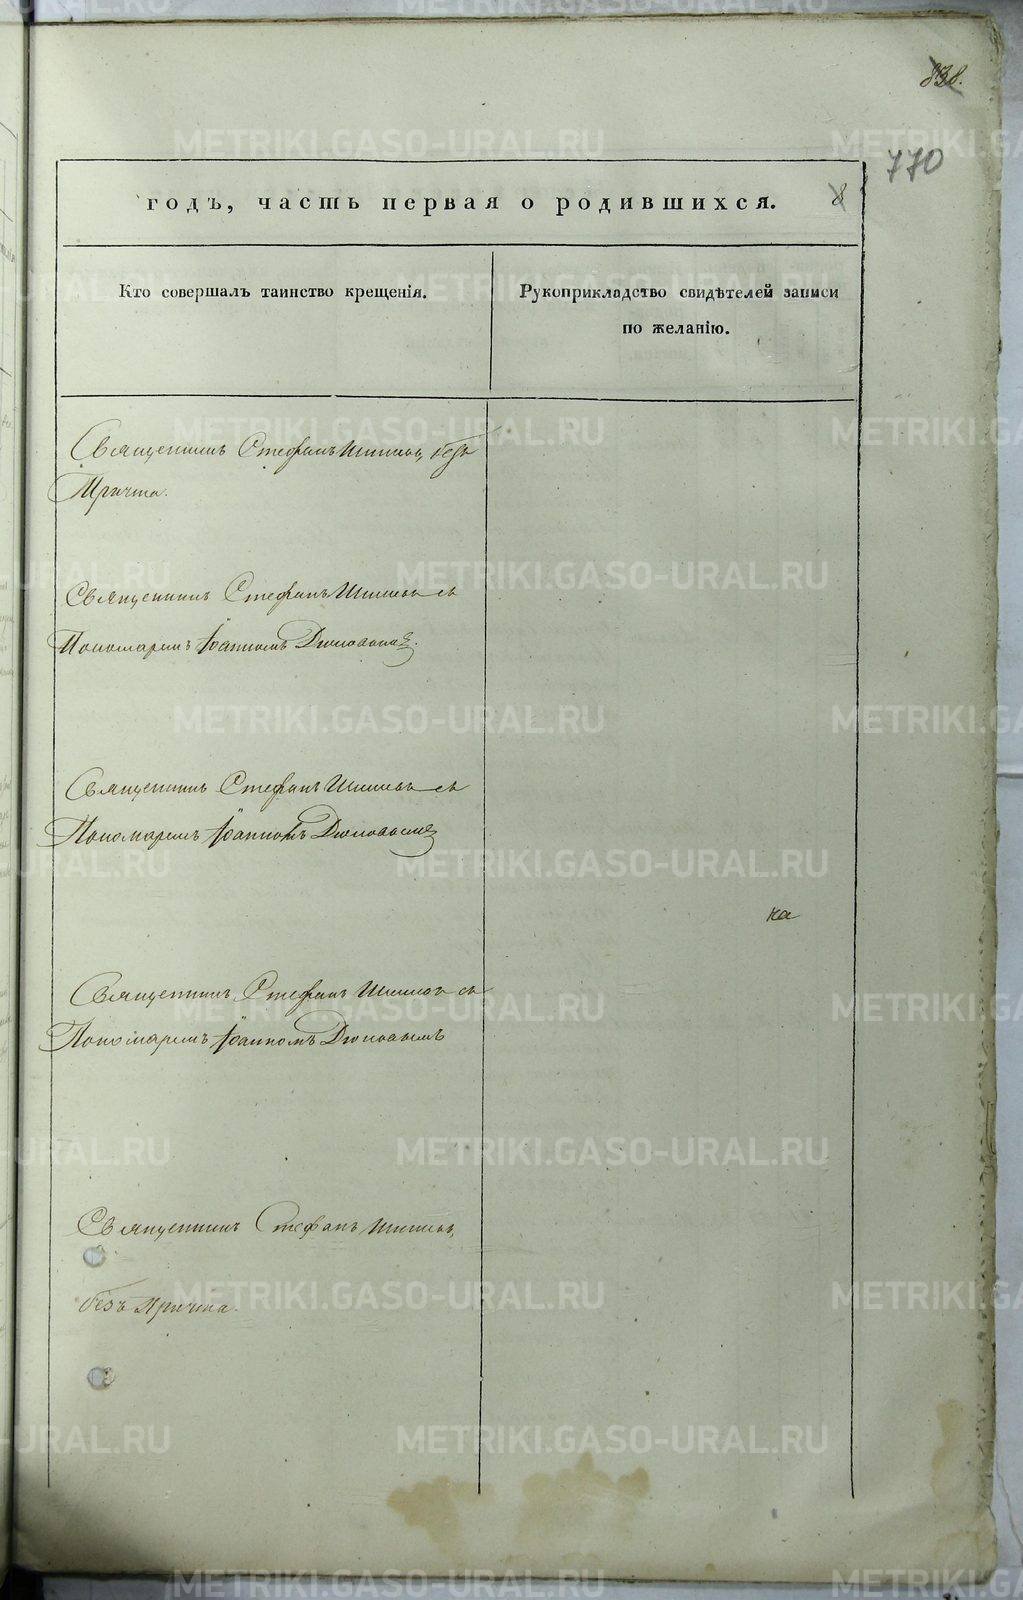 838.
770
годъ, часть первая о родившихся.
8
Кто совершалъ таинство крещенія.
Рукоприкладство свидѣтелей записи
по желанію.
Священникъ Стефанъ Шишовъ, безъ
Причта.
Священникъ Стефанъ Шишовъ съ
Пономаремъ Іоанномъ
Священникъ Стефанъ Шишовъ съ
Пономаремъ Іоанномъ
ка
Священникъ Стефанъ Шишовъ съ
Пономаремъ Іоанномъ
Священникъ Стефанъ Шишовъ,
безъ Причта.
METRIKI.GASO-URAL.RU